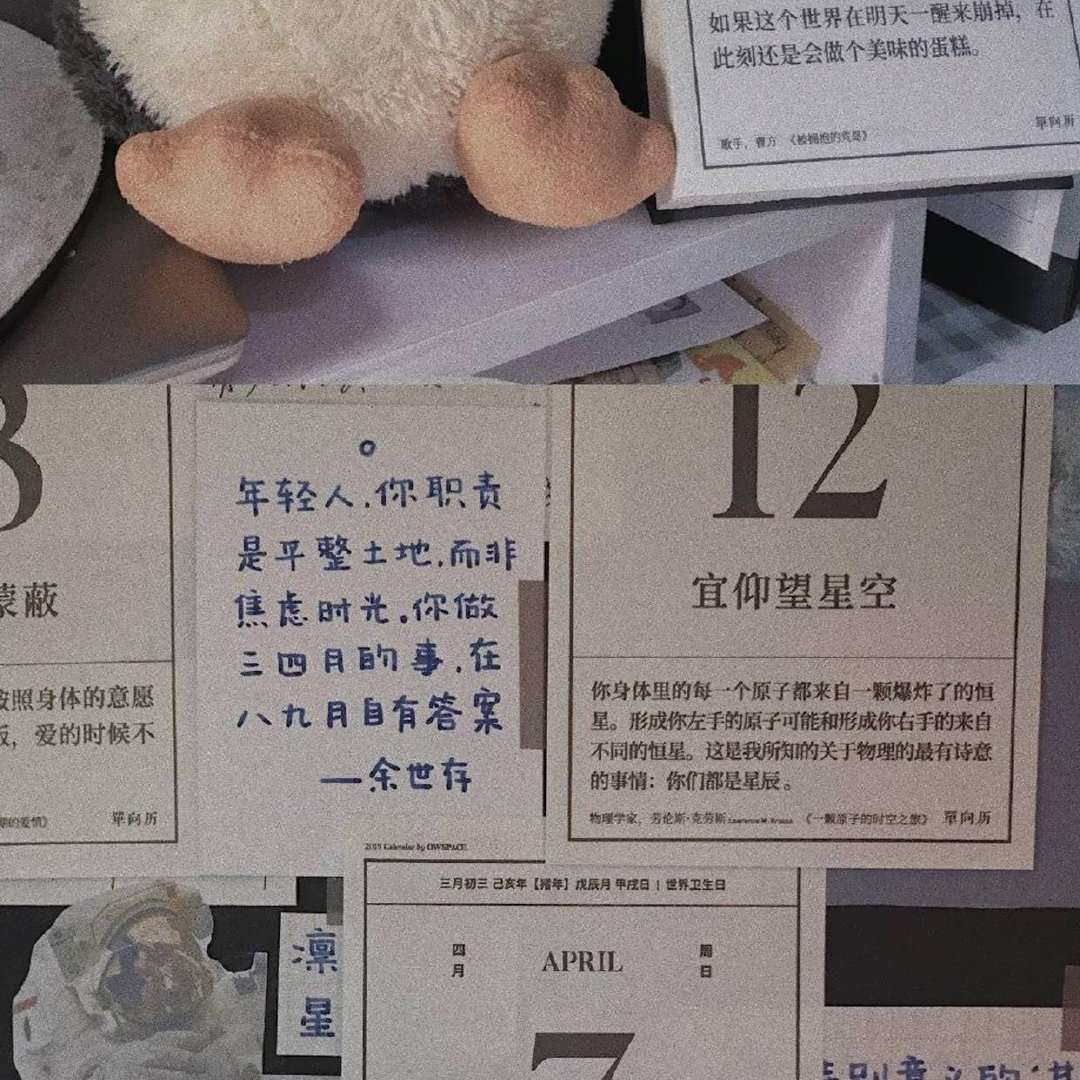 如果这个世界在明天一醒来崩掉，在
此刻还是会做个美味的蛋糕。
單向历
歌手，曹方 《被拥抱的荒岛》
12
宜仰望星空
你身体里的每一个原子都来自一颗爆炸了的恒
星。形成你左手的原子可能和形成你右手的来自
不同的恒星。这是我所知的关于物理的最有诗意
的事情：你们都是星辰。
物理学家，劳伦斯·克劳斯 Lawrence M. Krauss 《一颗原子的时空之旅》 單向历
年轻人，你职责
是平整土地，而非
焦虑时光。你做
三四月的事，在
八九月自有答案
—余世存
蒙蔽
按照身体的意愿
爱的时候不
的爱情》 單向历
2019 Calendar by OWSPACE
三月初三 己亥年【猪年】戊辰月 甲戌日 | 世界卫生日
四月 APRIL 周日
7
凛
星
特别意义的